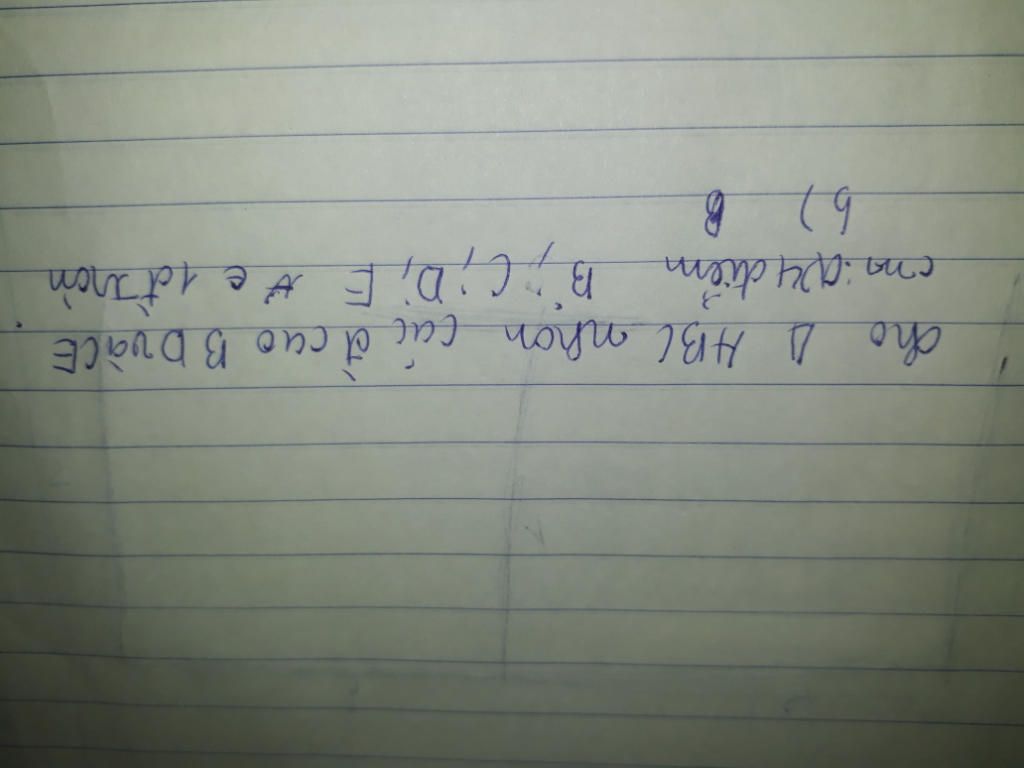 cho Δ ABC nhọn các đ cao BD và CE
cm: a, 4 điểm B, C, D, E ∈ 1 đ tròn
b) B